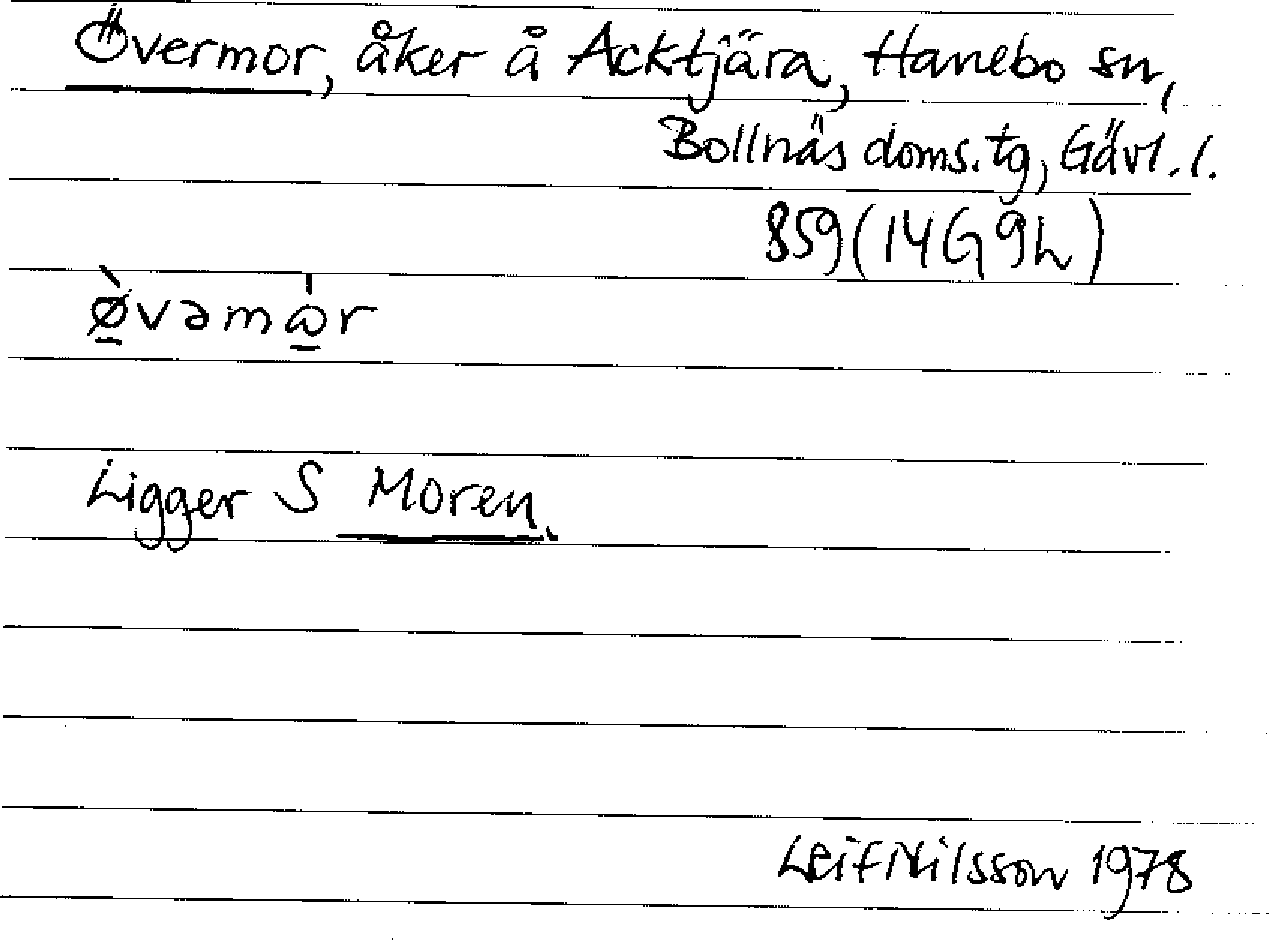 Övermor, åker å Acktjära, Hanebo sn,
Bollnäs doms.tg, Gävl.l.
859 (14G 9h)
ø̱̀vəmω̱̍r
Ligger S Moren.
Leif Nilsson 1978